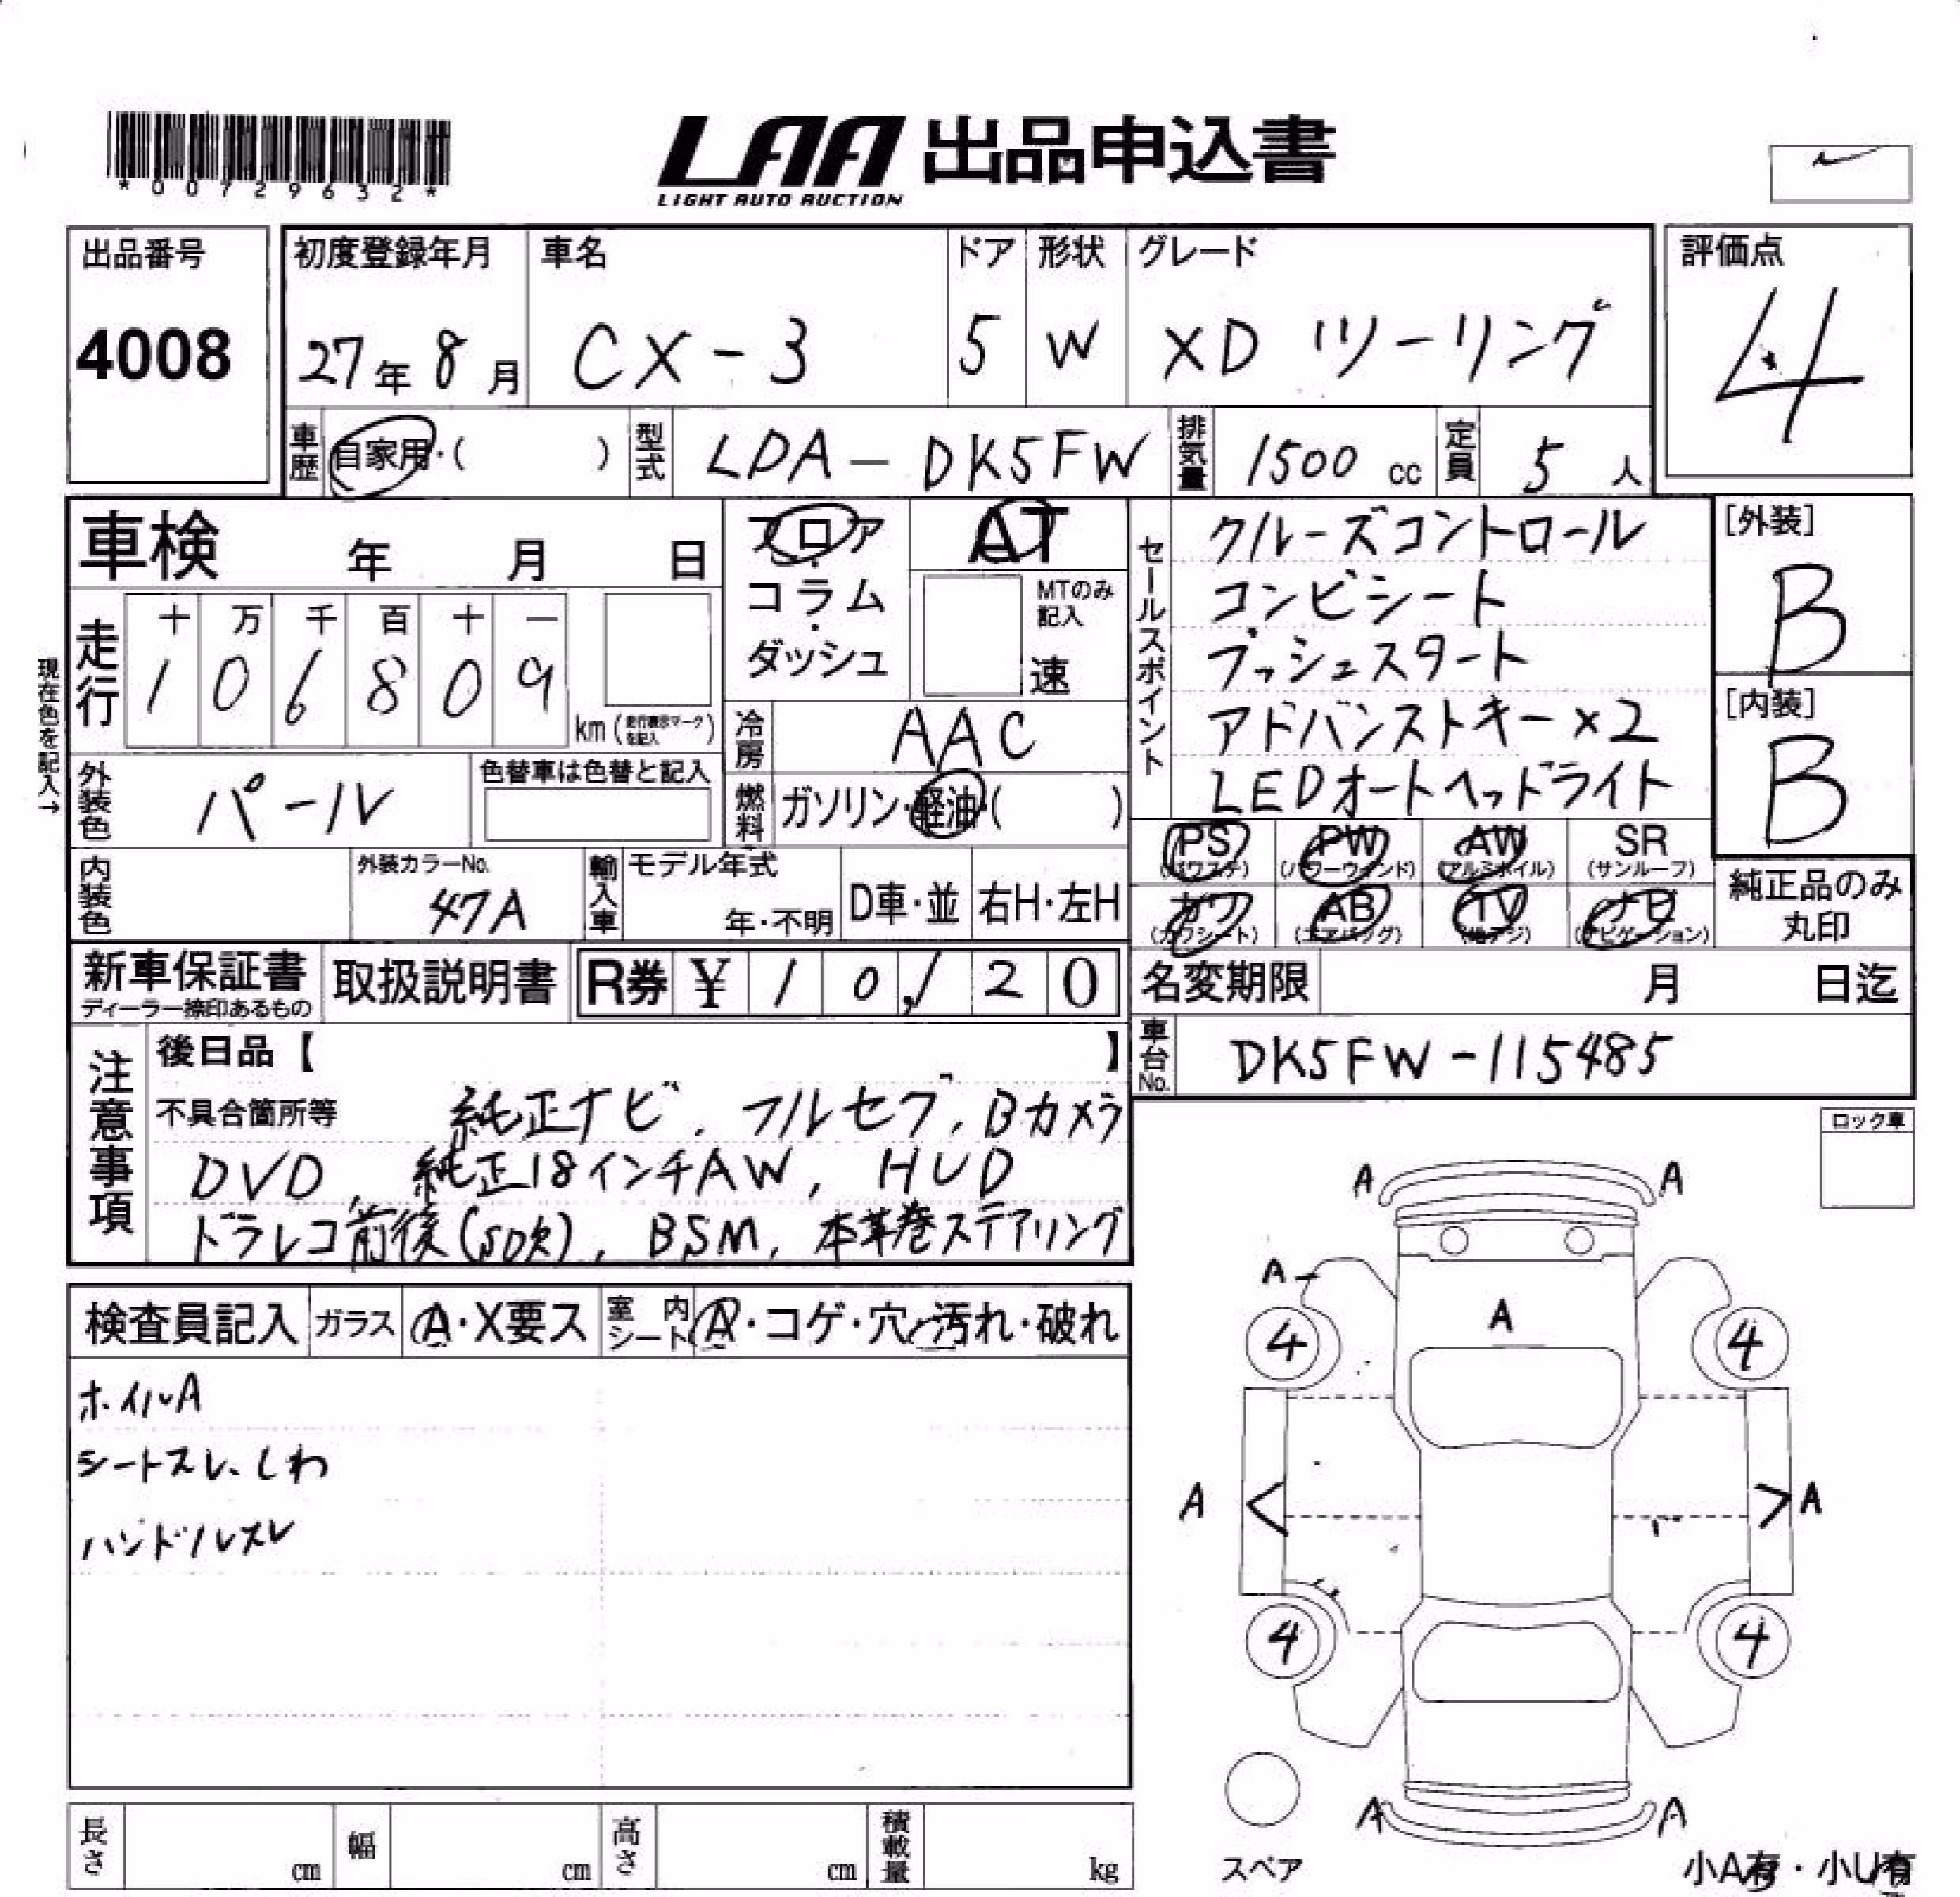 *00729632*
LAA 出品申込書
LIGHT AUTO AUCTION
出品番号
4008
初度登録年月
27年 8月
車名
CX-3
ドア
5
形状
W
グレード
XD ツーリング
評価点
4
車歴
自家用・( )
型式
LDA-DK5FW
排気量
1500 cc
定員
5人
車検 年 月 日
フロア・コラム・ダッシュ
AT
MTのみ記入
速
セールスポイント
クルーズコントロール
コンビシート
プッシュスタート
アドバンストキー×2
LEDオートヘッドライト
[外装]
B
[内装]
B
現在色を記入→
走行
十 万 千 百 十 一
1 0 6 8 0 9
km(走行表示マークを記入)
冷房
AAC
外装色
パール
色替車は色替と記入
燃料
ガソリン・軽油・( )
内装色
外装カラーNo.
47A
輸入車
モデル年式
年・不明
D車・並
右H・左H
PS (パワステ)
PW (パワーウィンド)
AW (アルミホイル)
SR (サンルーフ)
カワ (カワシート)
AB (エアバッグ)
TV (地デジ)
ナビ (ナビゲーション)
純正品のみ丸印
新車保証書
ディーラー捺印あるもの
取扱説明書
R券 ¥ 10,120
名変期限 月 日迄
車台No.
DK5FW-115485
注意事項
後日品【 】
不具合箇所等 純正ナビ, フルセグ, Bカメラ
DVD, 純正18インチAW, HUD
ドラレコ前後(SD欠), BSM, 本革巻ステアリング
ロック車
検査員記入
ガラス
A・X要ス
室内シート
A・コゲ・穴・汚れ・破れ
ホイルA
シートスレ、しわ
ハンドルスレ
A A
A
A
4 4
A A
4 4
A A
スペア
小A有・小U有
長さ cm
幅 cm
高さ cm
積載量 kg